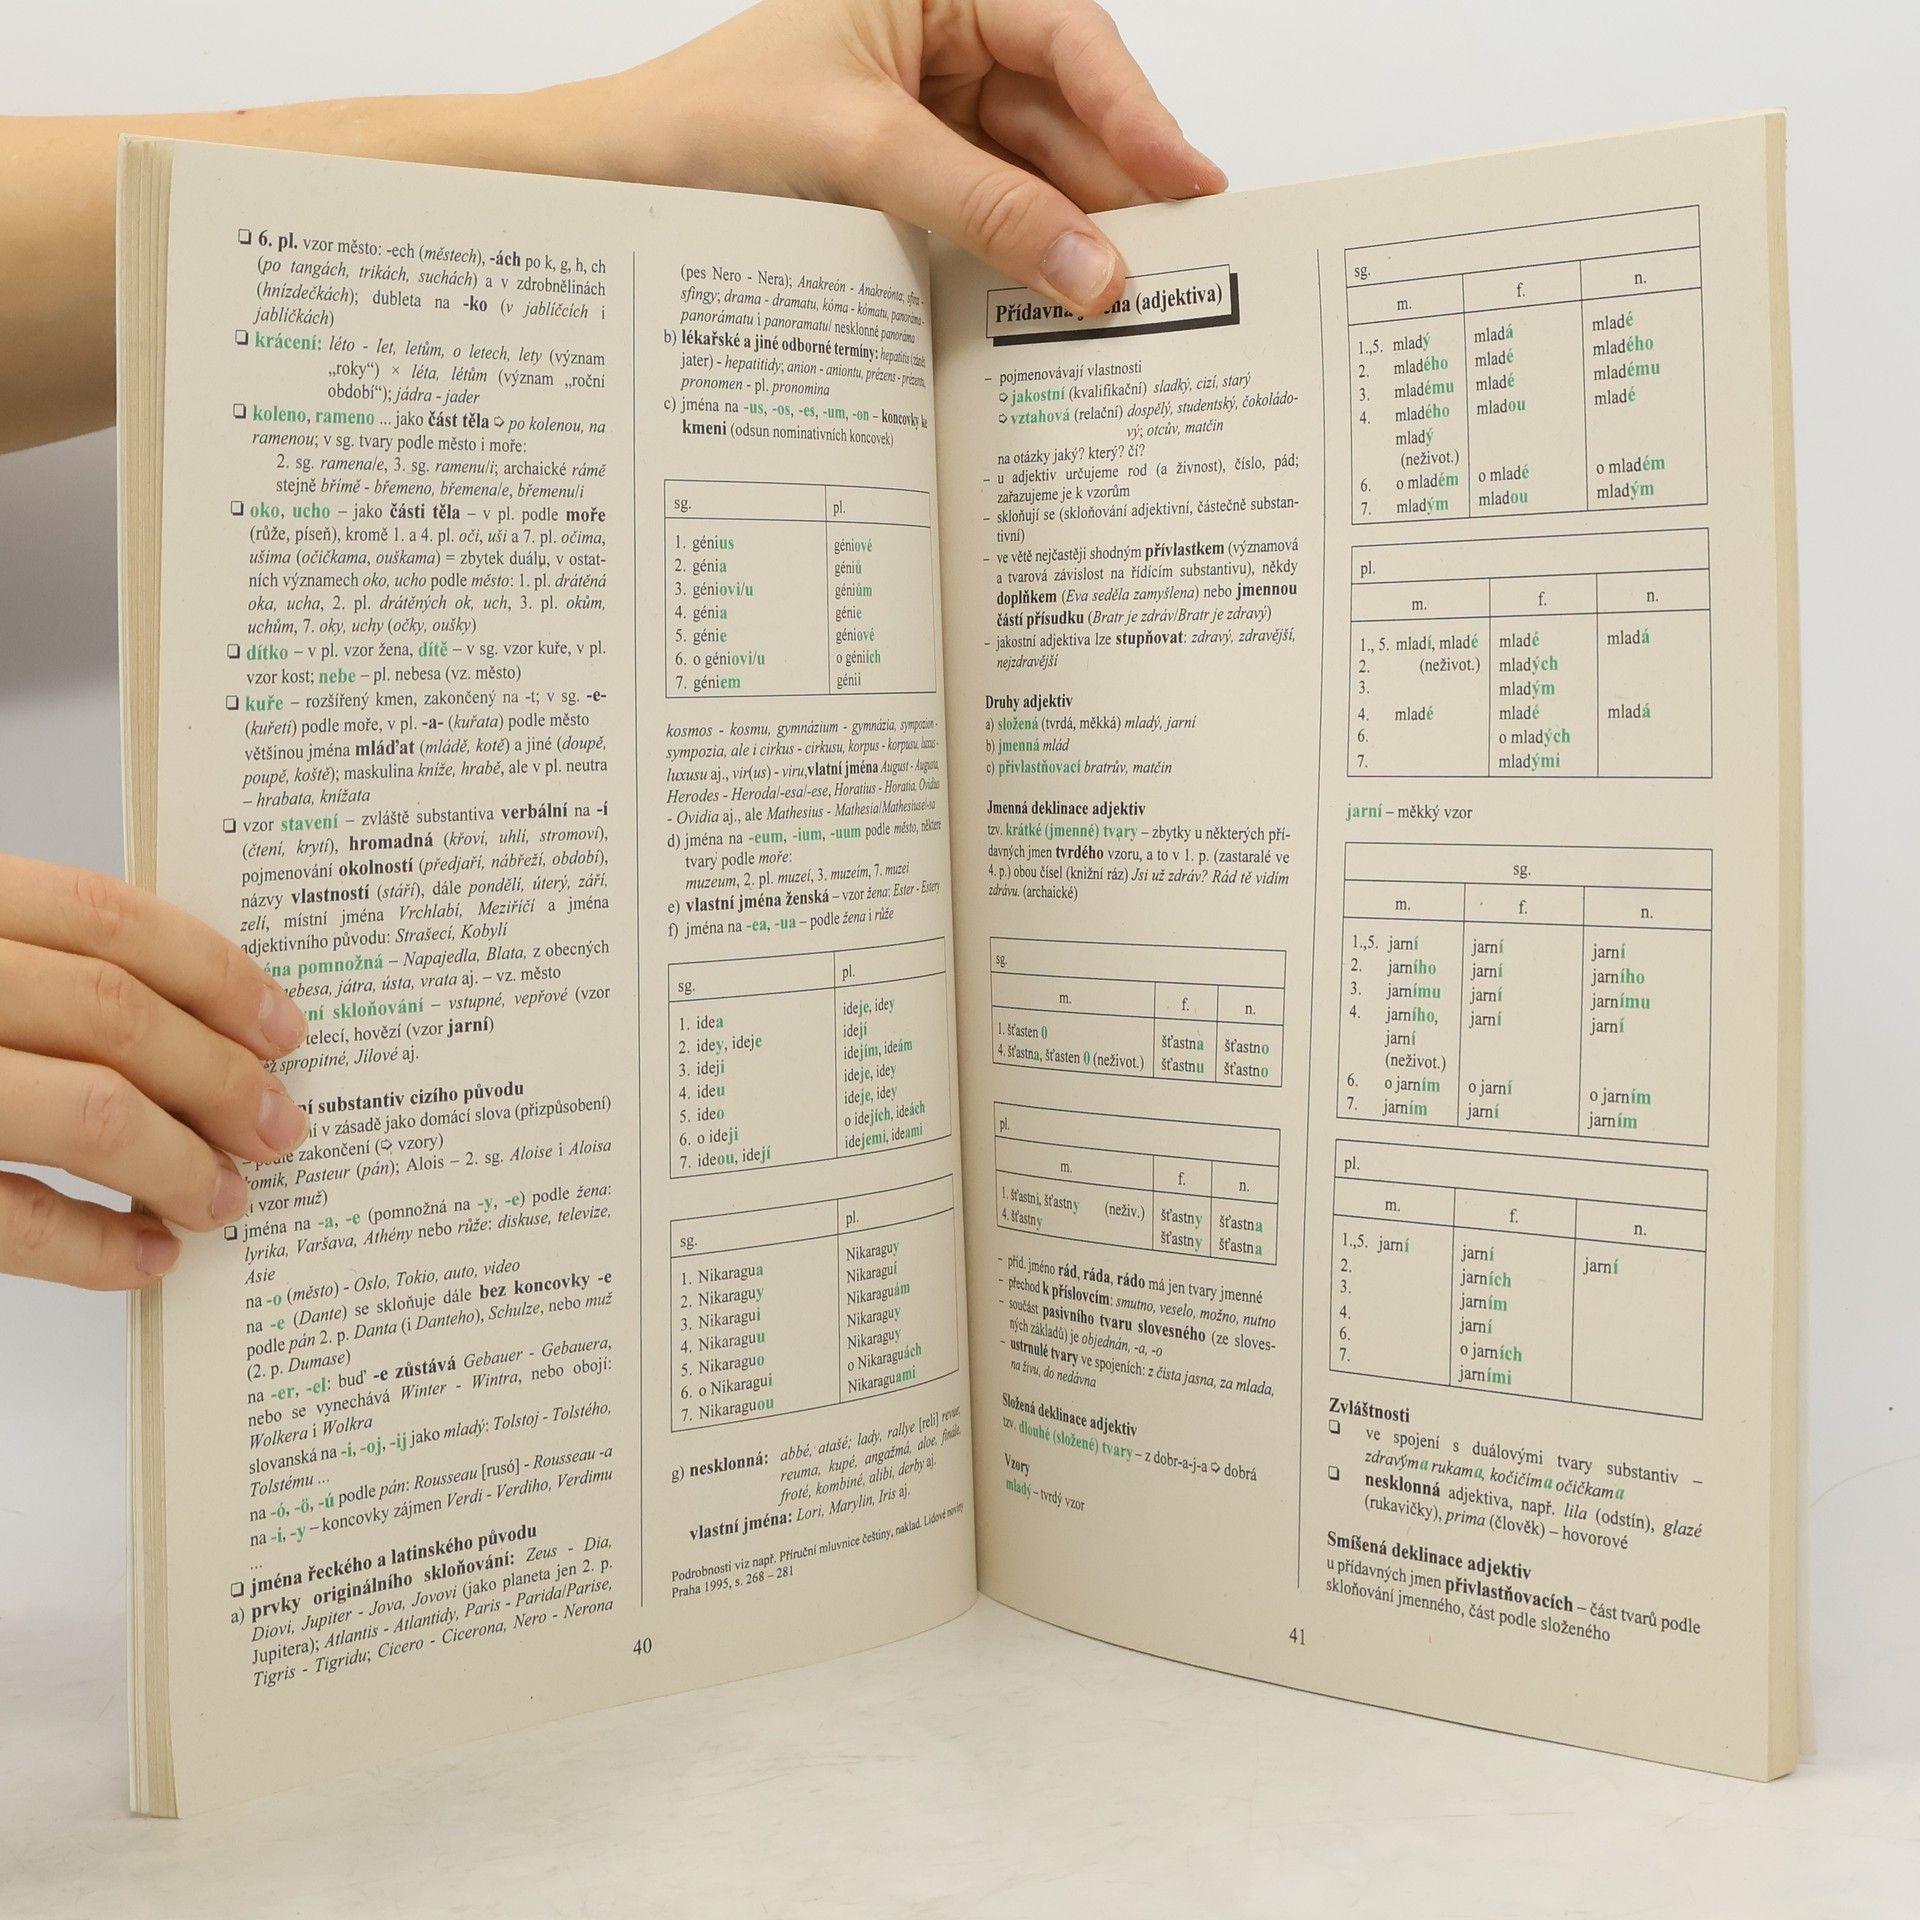 ❏ 6. pl. vzor město: -ech (městech), -ách po k, g, h, ch
(po tangách, trikách, suchách) a v zdrobnělinách
(hnízdečkách); dubleta na -ko (v jablíčcích i
jablíčkách)
❏ krácení: léto - let, letům, o letech, lety (význam
„roky“) × léta, létům (význam „roční
období“); jádra - jader
❏ koleno, rameno ... jako část těla ➩ po kolenou, na
ramenou; v sg. tvary podle město i moře:
2. sg. ramena/e, 3. sg. ramenu/i; archaické rámě
stejně břímě - břemeno, břemena/e, břemenu/i
❏ oko, ucho – jako části těla – v pl. podle moře
(růže, píseň), kromě 1. a 4. pl. oči, uši a 7. pl. očima,
ušima (očičkama, ouškama) = zbytek duálu, v ostat-
ních významech oko, ucho podle město: 1. pl. drátěná
oka, ucha, 2. pl. drátěných ok, uch, 3. pl. okům,
uchům, 7. oky, uchy (očky, oušky)
❏ dítko – v pl. vzor žena, dítě – v sg. vzor kuře, v pl.
vzor kost; nebe – pl. nebesa (vz. město)
❏ kuře – rozšířený kmen, zakončený na -t; v sg. -e-
(kuřeti) podle moře, v pl. -a- (kuřata) podle město
většinou jména mláďat (mládě, kotě) a jiné (doupě,
poupě, koště); maskulina kníže, hrabě, ale v pl. neutra
– hrabata, knížata
❏ vzor stavení – zvláště substantiva verbální na -í
(čtení, krytí), hromadná (křoví, uhlí, stromoví),
pojmenování okolností (předjaří, nábřeží, období),
názvy vlastností (stáří), dále pondělí, úterý, září,
zelí, místní jména Vrchlabí, Meziříčí a jména
adjektivního původu: Strašecí, Kobylí
pomnožná – Napajedla, Blata, z obecných
nebesa, játra, ústa, vrata aj. – vz. město
skloňování – vstupné, vepřové (vzor
telecí, hovězí (vzor jarní)
spropitné, Jílové aj.
substantiv cizího původu
v zásadě jako domácí slova (přizpůsobení)
zakončení (➩ vzory)
komik, Pasteur (pán); Alois – 2. sg. Aloise i Aloisa
(i vzor muž)
❏ jména na -a, -e (pomnožná na -y, -e) podle žena:
lyrika, Varšava, Athény nebo růže: diskuse, televize,
Asie
na -o (město) - Oslo, Tokio, auto, video
na -e (Dante) se skloňuje dále bez koncovky -e
podle pán 2. p. Danta (i Danteho), Schulze, nebo muž
(2. p. Dumase)
na -er, -el: buď -e zůstává Gebauer - Gebauera,
nebo se vynechává Winter - Wintra, nebo obojí:
Wolkera i Wolkra
slovanská na -i, -oj, -ij jako mladý: Tolstoj - Tolstého,
Tolstému ...
na -ó, -ö, -ú podle pán: Rousseau [rusó] - Rousseau -a
na -i, -y – koncovky zájmen Verdi - Verdiho, Verdimu
...
❏ jména řeckého a latinského původu
a) prvky originálního skloňování: Zeus - Dia,
Diovi, Jupiter - Jova, Jovovi (jako planeta jen 2. p.
Jupitera); Atlantis - Atlantidy, Paris - Parida/Parise,
Tigris - Tigridu; Cicero - Cicerona, Nero - Nerona
(pes Nero - Nera); Anakreón - Anakreónta; sfinx -
sfingy; drama - dramatu, kóma - kómatu, panoráma -
panorámatu i panoramatu/ nesklonné panoráma
b) lékařské a jiné odborné termíny: hepatitis (zánět
jater) - hepatitidy; anion - aniontu, prézens - prézentu,
pronomen - pl. pronomina
c) jména na -us, -os, -es, -um, -on – koncovky ke
kmeni (odsun nominativních koncovek)
sg. pl.
1. génius géniové
2. génia géniů
3. géniovi/u géniům
4. génia génie
5. génie géniové
6. o géniovi/u o géniích
7. géniem génii
kosmos - kosmu, gymnázium - gymnázia, sympozion -
sympozia, ale i cirkus - cirkusu, korpus - korpusu, luxus -
luxusu aj., vir(us) - viru,vlatní jména August - Augusta,
Herodes - Heroda/-esa/-ese, Horatius - Horatia, Ovidius
- Ovidia aj., ale Mathesius - Mathesia/Mathesiuse/-sa
d) jména na -eum, -ium, -uum podle město, některé
tvary podle moře:
muzeum, 2. pl. muzeí, 3. muzeím, 7. muzei
e) vlastní jména ženská – vzor žena: Ester - Estery
f) jména na -ea, -ua – podle žena i růže
sg. pl.
1. idea ideje, idey
2. idey, ideje idejí
3. ideji idejím, ideám
4. ideu ideje, idey
5. ideo ideje, idey
6. o ideji o idejích, ideách
7. ideou, idejí idejemi, ideami
sg. pl.
1. Nikaragua Nikaraguy
2. Nikaraguy Nikaraguí
3. Nikaragui Nikaraguám
4. Nikaraguu Nikaraguy
5. Nikaraguo Nikaraguy
6. o Nikaragui o Nikaraguách
7. Nikaraguou Nikaraguami
g) nesklonná: abbé, atašé; lady, rallye [reli] revue,
reuma, kupé, angažmá, aloe, finále,
froté, kombiné, alibi, derby aj.
vlastní jména: Lori, Marylin, Iris aj.
Podrobnosti viz např. Příruční mluvnice češtiny, naklad. Lidové noviny
Praha 1995, s. 268 – 281
40
(adjektiva)
– pojmenovávají vlastnosti
➩ jakostní (kvalifikační) sladký, cizí, starý
➩ vztahová (relační) dospělý, studentský, čokoládo-
vý; otcův, matčin
na otázky jaký? který? čí?
– u adjektiv určujeme rod (a živnost), číslo, pád;
zařazujeme je k vzorům
– skloňují se (skloňování adjektivní, částečně substan-
tivní)
– ve větě nejčastěji shodným přívlastkem (významová
a tvarová závislost na řídícím substantivu), někdy
doplňkem (Eva seděla zamyšlena) nebo jmennou
částí přísudku (Bratr je zdráv/Bratr je zdravý)
– jakostní adjektiva lze stupňovat: zdravý, zdravější,
nejzdravější
Druhy adjektiv
a) složená (tvrdá, měkká) mladý, jarní
b) jmenná mlád
c) přivlastňovací bratrův, matčin
Jmenná deklinace adjektiv
tzv. krátké (jmenné) tvary – zbytky u některých pří-
davných jmen tvrdého vzoru, a to v 1. p. (zastaralé ve
4. p.) obou čísel (knižní ráz) Jsi už zdráv? Rád tě vidím
zdrávu. (archaické)
sg.
m. f. n.
1. šťasten 0 šťastna šťastno
4. šťastna, šťasten 0 (neživot.) šťastnu šťastno
pl.
m. f. n.
1. šťastni, šťastny (neživ.) šťastny šťastna
4. šťastny šťastny šťastna
– příd. jméno rád, ráda, rádo má jen tvary jmenné
– přechod k příslovcím: smutno, veselo, možno, nutno
– součást pasivního tvaru slovesného (ze sloves-
ných základů) je objednán, -a, -o
– ustrnulé tvary ve spojeních: z čista jasna, za mlada,
na živu, do nedávna
Složená deklinace adjektiv
tzv. dlouhé (složené) tvary – z dobr-a-j-a ➩ dobrá
Vzory
mladý – tvrdý vzor
sg.
m. f. n.
1.,5. mladý mladá mladé
2. mladého mladé mladého
3. mladému mladé mladému
4. mladého mladou mladé
mladý
(neživot.)
6. o mladém o mladé o mladém
7. mladým mladou mladým
pl.
m. f. n.
1., 5. mladí, mladé mladé mladá
2. (neživot.) mladých
3. mladým
4. mladé mladé mladá
6. o mladých
7. mladými
jarní – měkký vzor
sg.
m. f. n.
1.,5. jarní jarní jarní
2. jarního jarní jarního
3. jarnímu jarní jarnímu
4. jarního, jarní jarní
jarní
(neživot.)
6. o jarním o jarní o jarním
7. jarním jarní jarním
pl.
m. f. n.
1.,5. jarní jarní jarní
2. jarních
3. jarním
4. jarní
6. o jarních
7. jarními
Zvláštnosti
❏ ve spojení s duálovými tvary substantiv –
zdravýma rukama, kočičíma očičkama
❏ nesklonná adjektiva, např. lila (odstín), glazé
(rukavičky), prima (člověk) – hovorové
Smíšená deklinace adjektiv
u přídavných jmen přivlastňovacích – část tvarů podle
skloňování jmenného, část podle složeného
41